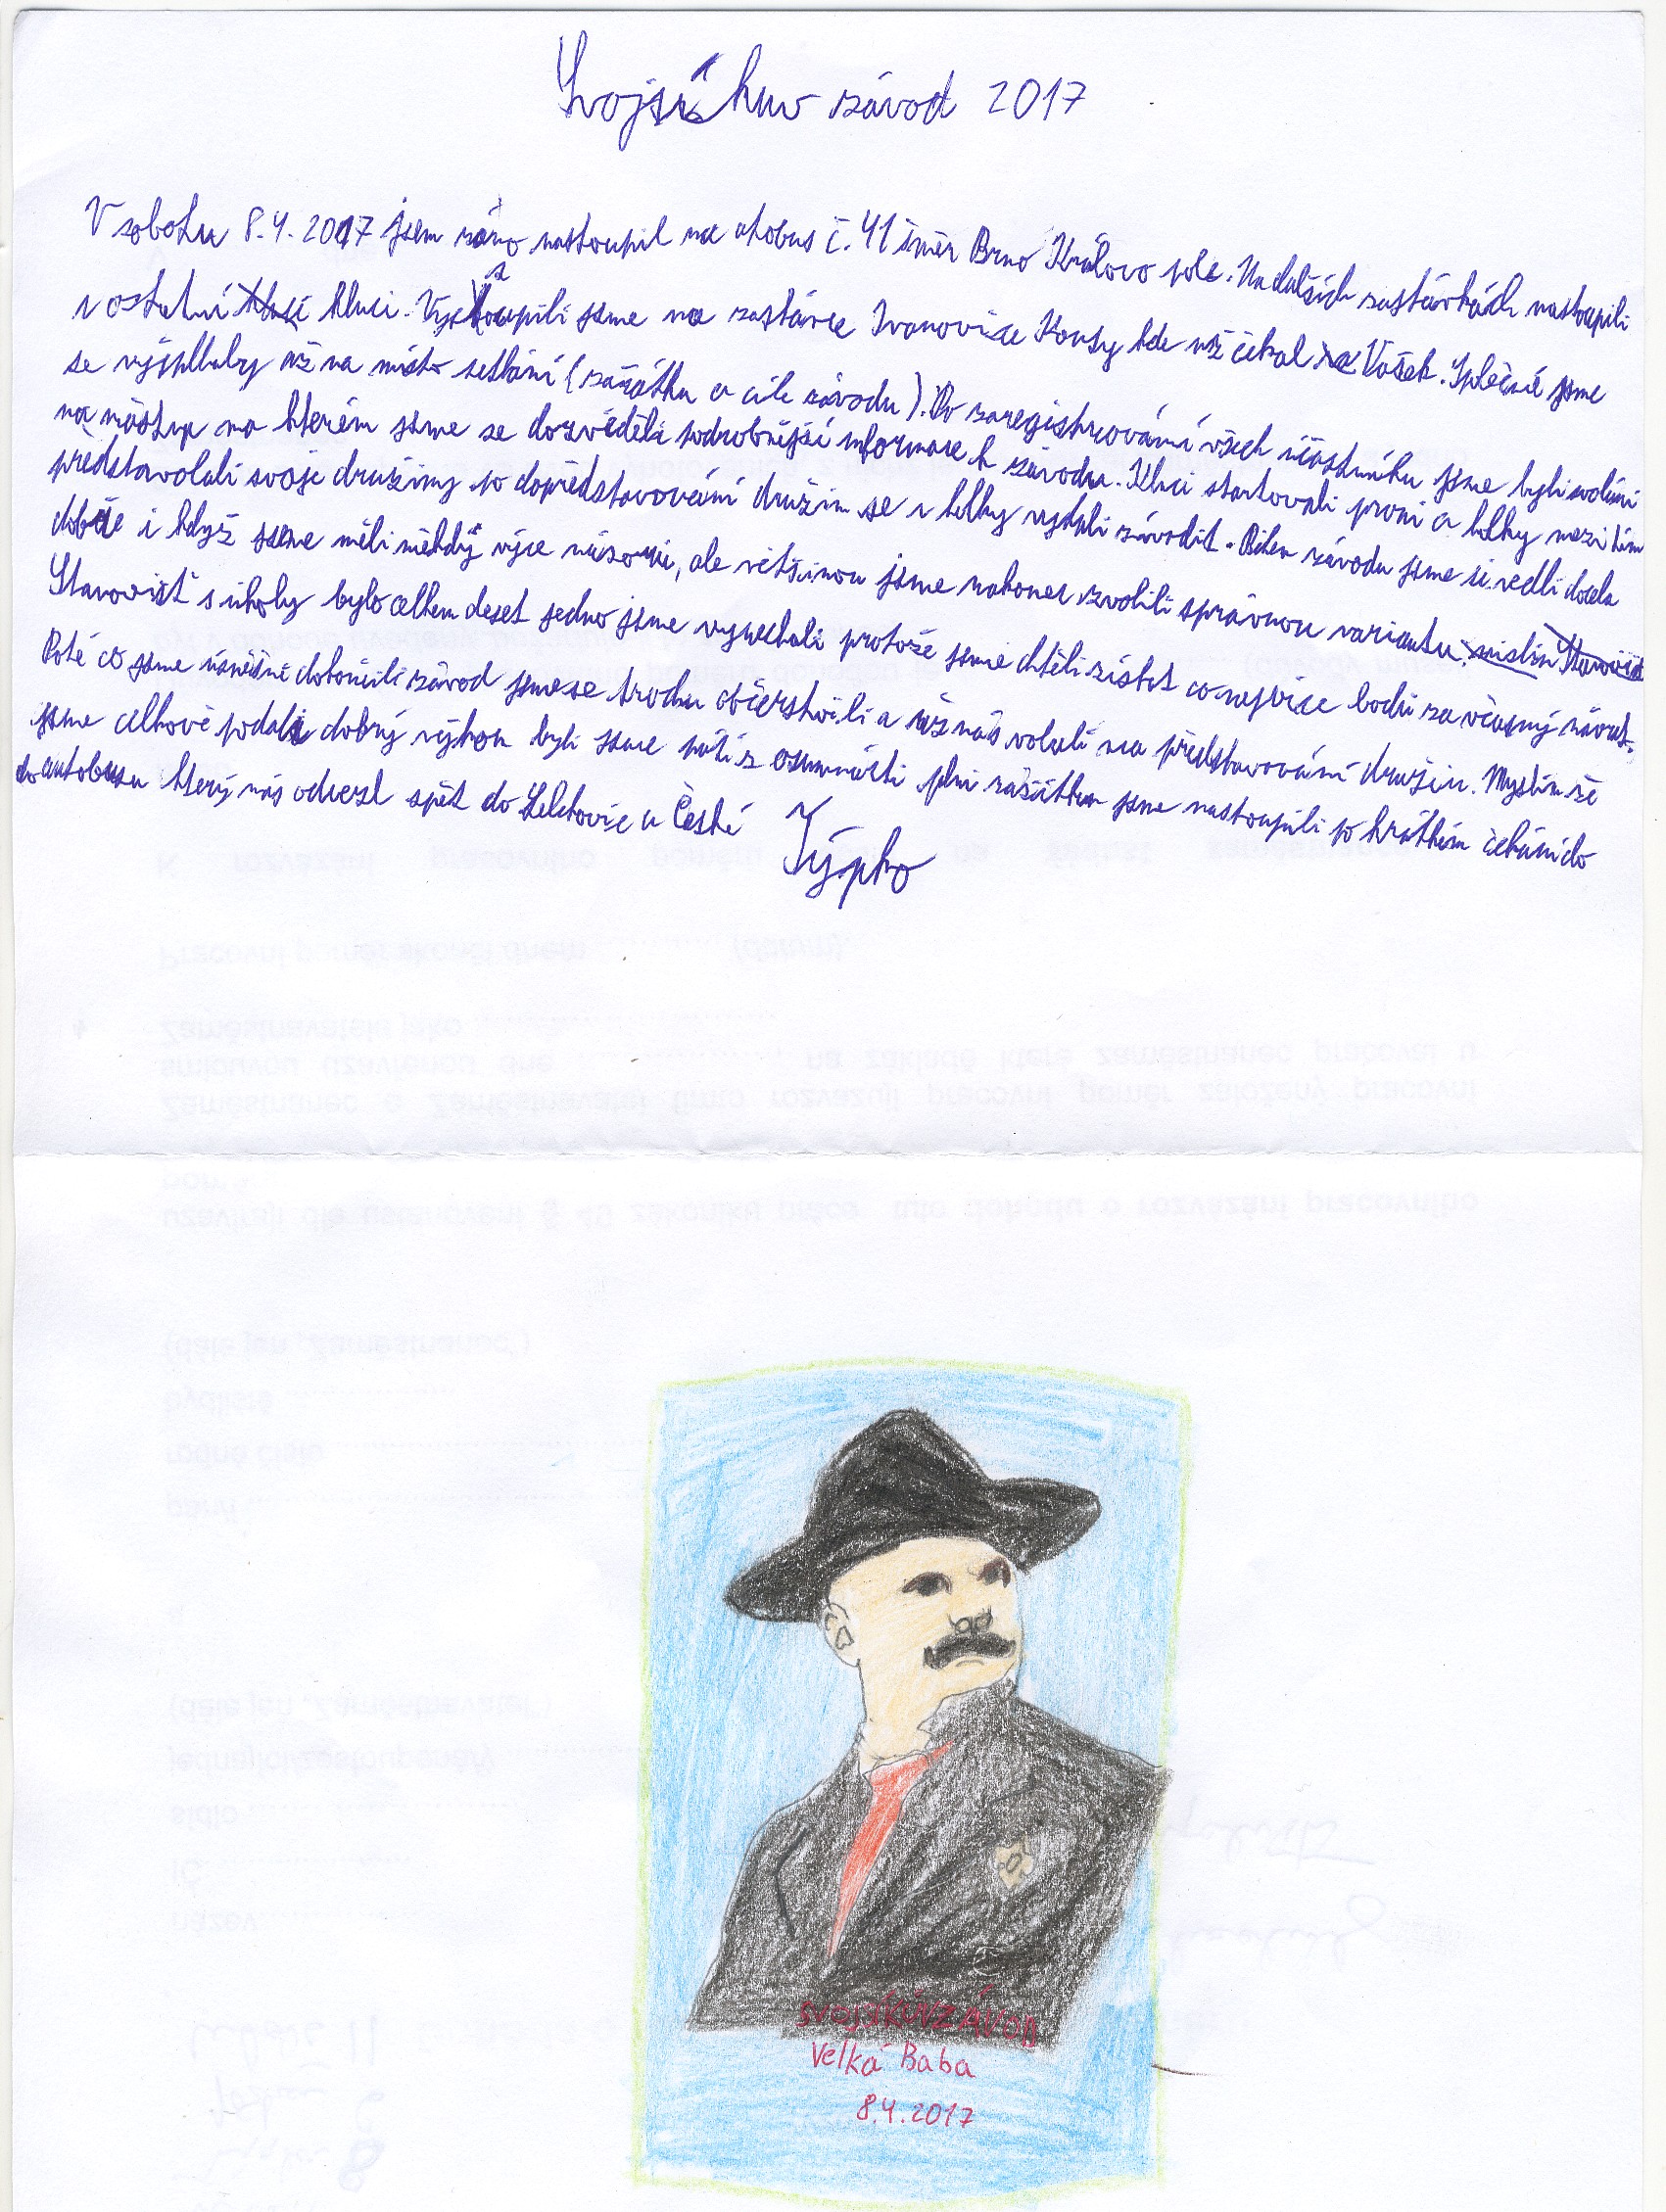 Svojsíkuv závod 2017
V sobotu 8.4.2017 jsem ráno nastoupil na atobus č.41 směr Brno Královo pole. Na dalších zastávkách nastoupili
i ostatní kluci. Vystoupili jsme na zastávce Ivanovice Konty kde už čekal Vašek. Splečně jsme
se vyšplhaly až na místo setkání (začátku a cíle závodu). Po zaregistrování všech účastníku jsme byli svoláni
na nástup na kterém jsme se dozvěděli podrobnější informace k závodu. Kluci startovali první a holky mezi tím
představolali svoje družiny, po dopředstavovávání družin se i holky vydali závodit. Během závodu jsme si vedli docela
dobře i když jsme měli někdy výce názorů, ale většinou jsme nakonec zvolili správnou variantu.
Stanovišť s úkoly bylo celkem deset jedno jsme vynechali protože jsme chtěli získat co nejvíce bodů za včasný návrat.
Poté co jsme úspěšně dokončili závod jsme se trochu občerstvili a už nás volali na představování družin. Myslím že
jsme celkově podali dobrý výkon byli jsme pátí z osumnácti plni zážitků jsme nastoupili po krátkém čekání do
do autobusu který nás odvezl zpět do Lelekovic a České
Týpko
SVOJSÍKŮV ZÁVOD
Velká Baba
8.4.2017